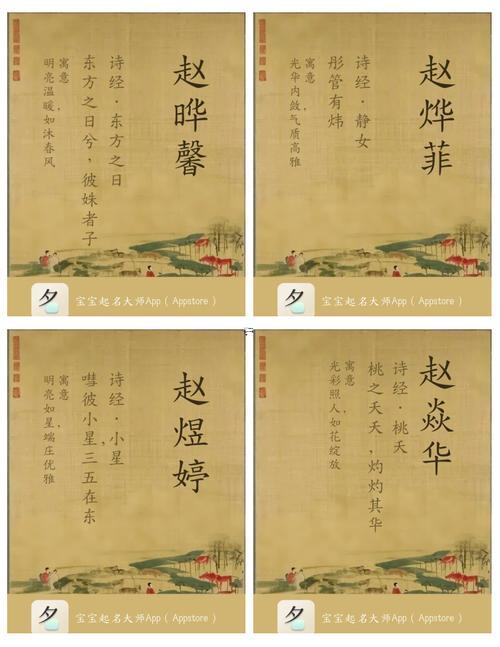 赵晔馨
诗经·东方之日
东方之日兮，彼姝者子
寓意
明亮温暖，如沐春风
夕
宝宝起名大师App（Appstore）
赵烨菲
诗经·静女
彤管有炜
寓意
光华内敛气质高雅
夕
宝宝起名大师App（Appstore）
赵煜婷
诗经·小星
嘒彼小星，三五在东
寓意
明亮如星，端庄优雅
夕
宝宝起名大师App（Appstore）
赵焱华
诗经·桃夭
桃之夭夭，灼灼其华
寓意
光彩照人，如花绽放
夕
宝宝起名大师App（Appstore）